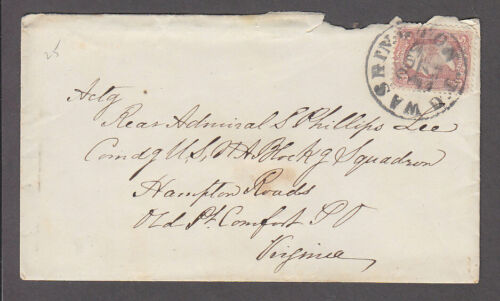 25
WASHINGTON D.C.
Actg
Rear Admiral S Phillips Lee
Comdg U.S. N.A. Blockg Squadron
Hampton Roads
Old Pt. Comfort P O
Virginia